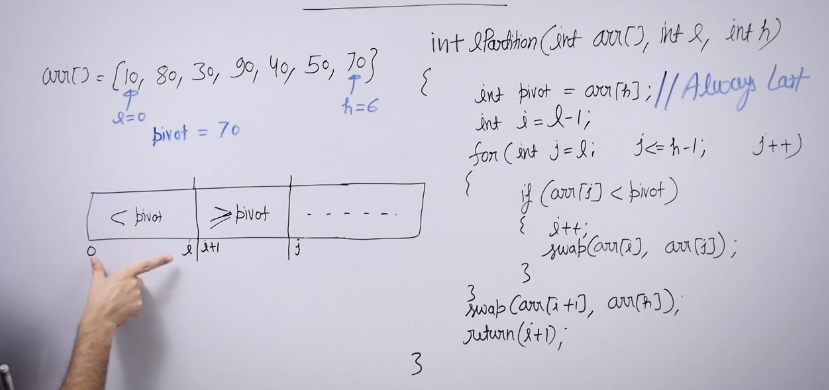 arr[] = {10, 80, 30, 90, 40, 50, 70}
l=0
h=6
pivot = 70
< pivot
≥pivot
- - - - - -
0
i
i+1
j
int lPartition(int arr[], int l, int h)
{
int pivot = arr[h]; //Always Last
int i=l-1;
for(int j=l; j<=h-1; j++)
{
if (arr[j] < pivot)
{ i++;
swap(arr[i], arr[j]);
}
}
swap(arr[i+1], arr[h]);
return(i+1);
}